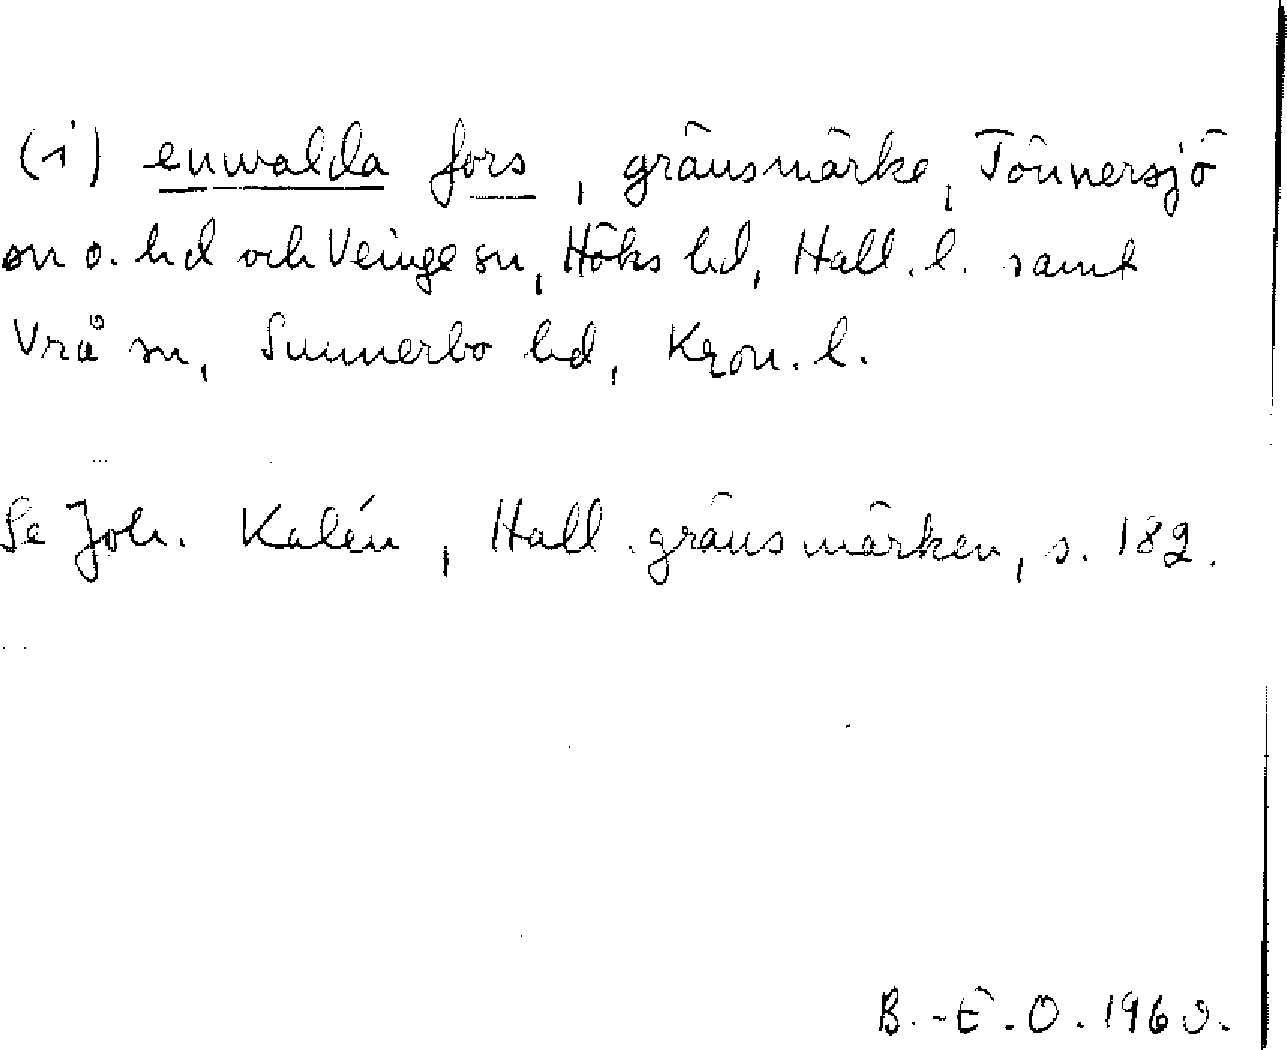 (i) enwalda fors, gränsmärke, Tönnersjö
sn o. hd och Veinge sn, Höks hd, Hall. l. samt
Vrå sn, Sunnerbo hd, Kron. l.
Se Joh. Kalén, Hall. gränsmärken, s. 182.
B.-E. O. 1960.